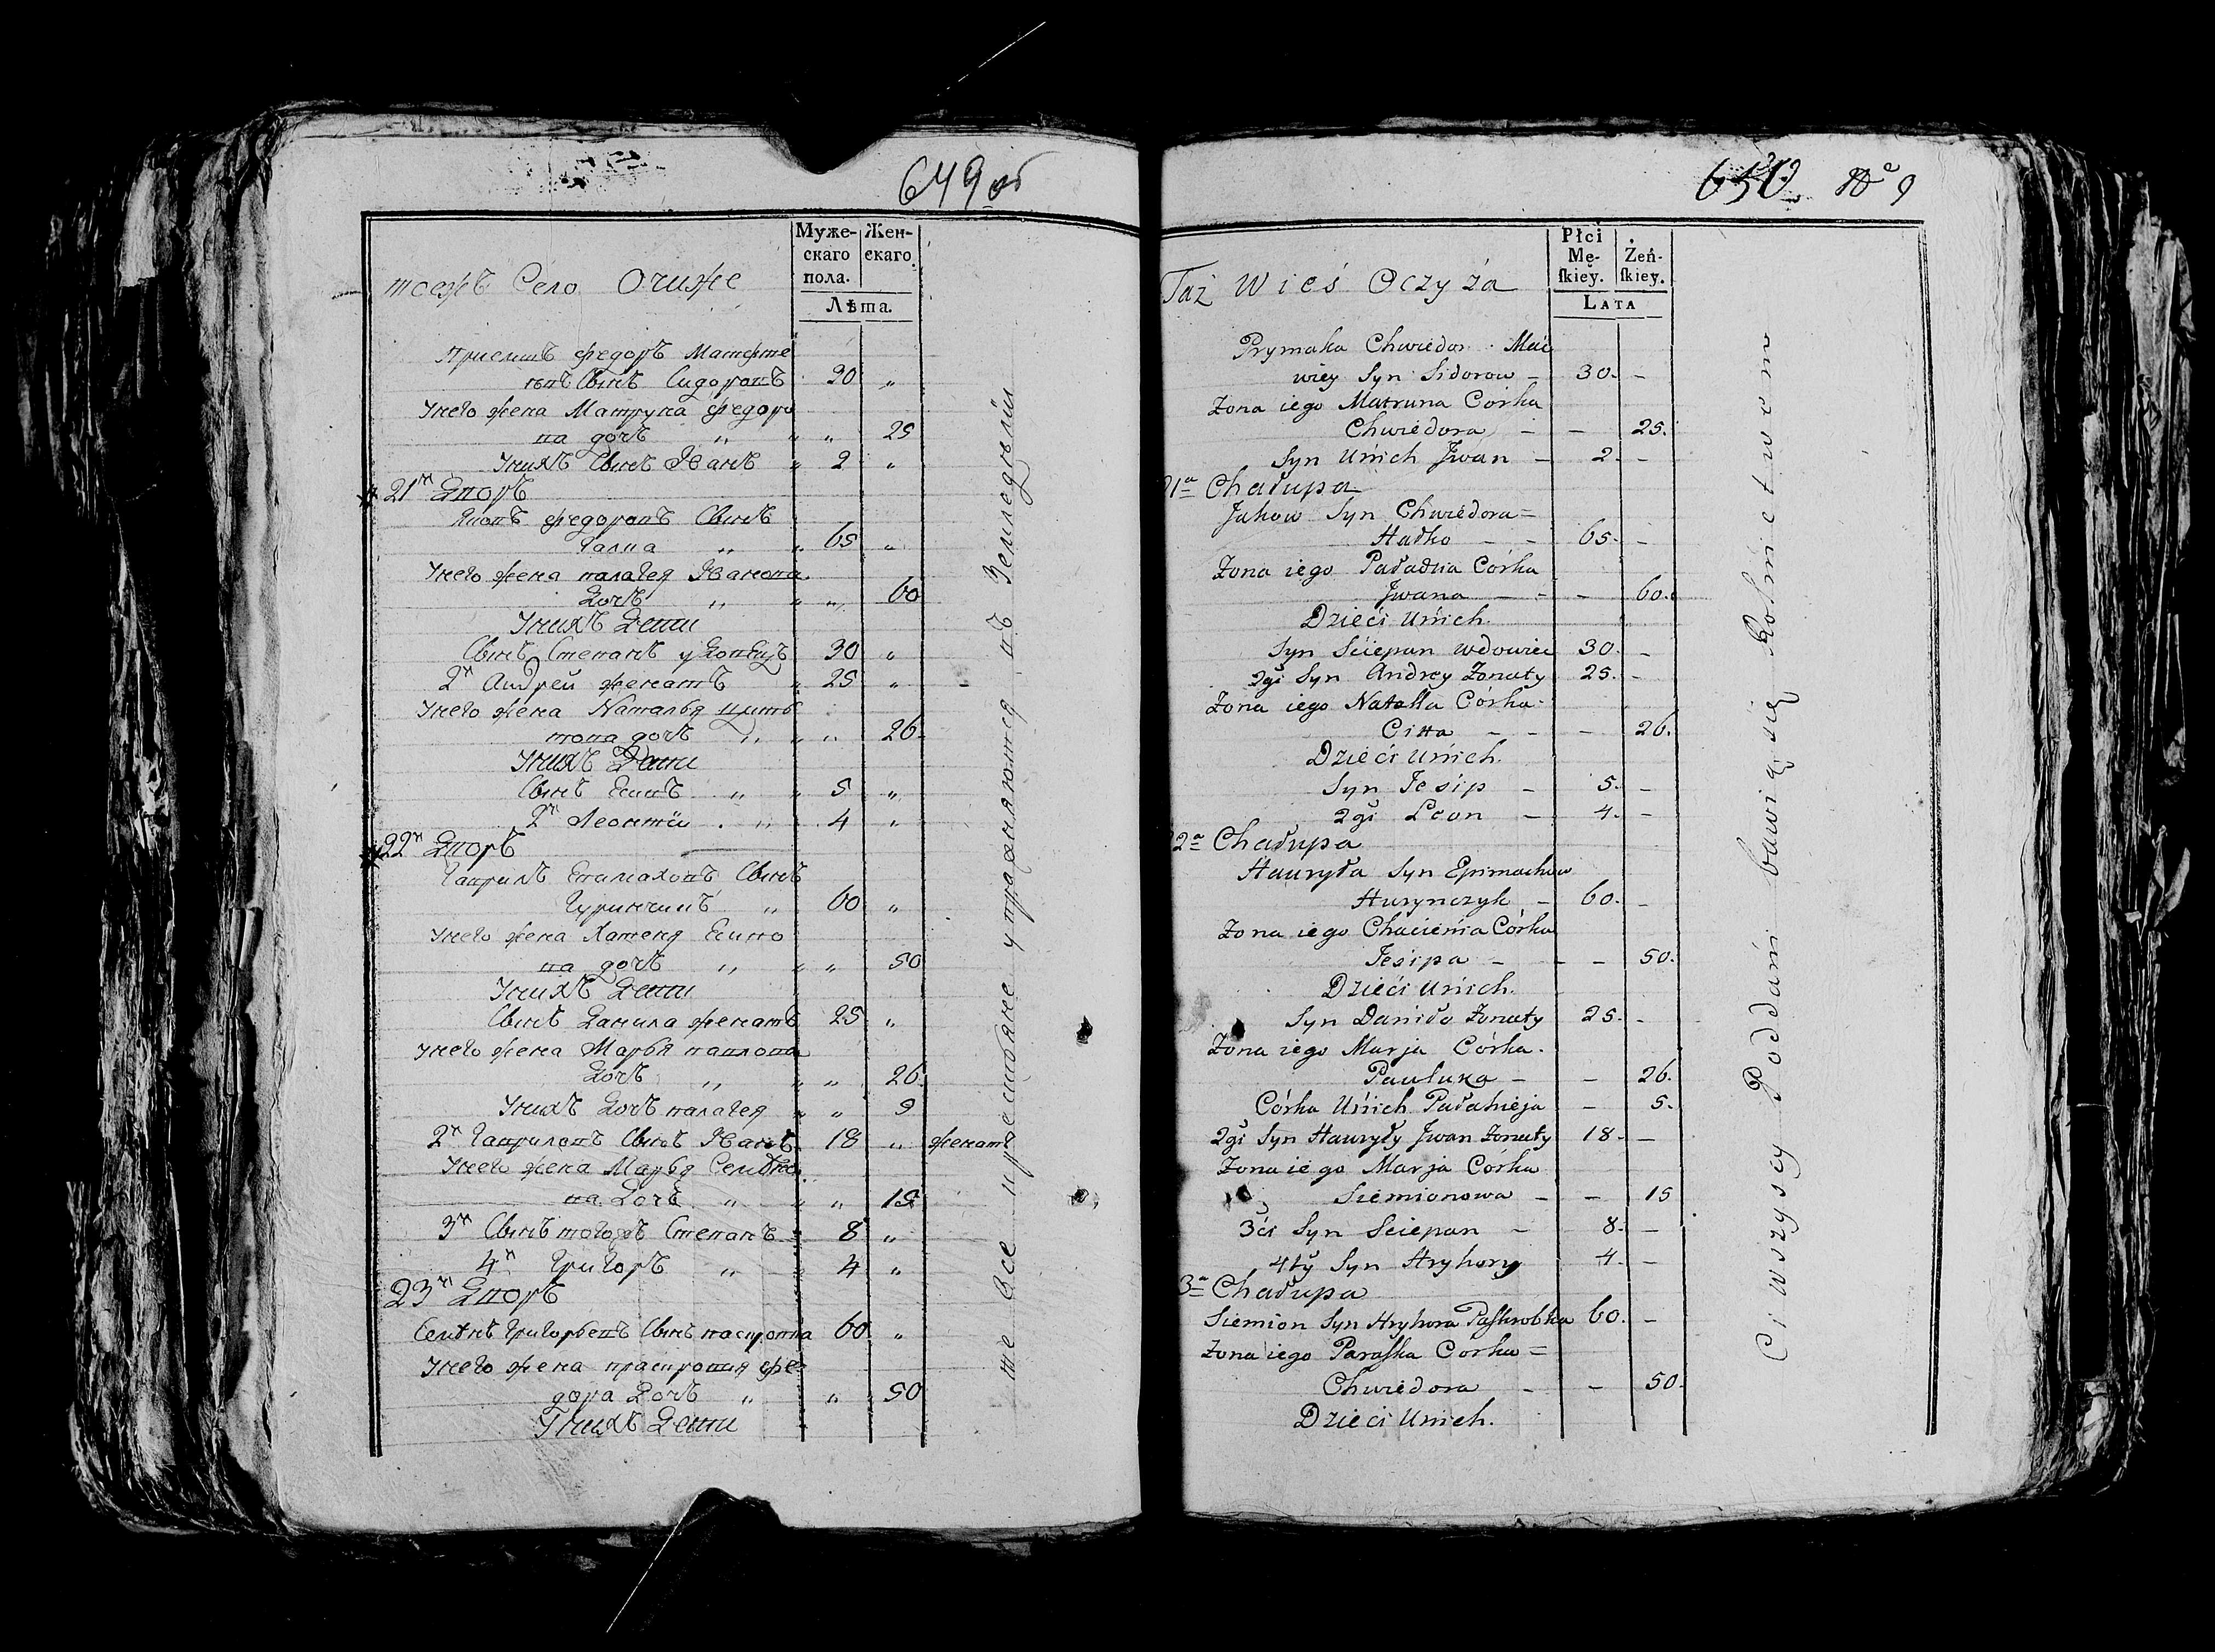 649 об
Муже-
скаго
пола.
Жен-
скаго.
Лѣта.
тоежъ Село Очиже
Приемшъ Федоръ Матфѣе
въ Сынъ Сидоровъ 20 "
Унего жена Матруна Федоро
ва дочь " " " 25
Унихъ Сынъ Иванъ " 2 "
21й Дворъ
Яковъ Федоровъ Сынъ
Галка " " 65 "
Унего жена палагея Иванова
Дочь " " " 60
Унихъ Дети
Сынъ Степанъ удовецъ 30 "
2й Андрей женатъ " 25 "
Унего жена Наталья
това дочь " " " 26
Унихъ Дети
Сынъ Есипъ " " 5 "
2й Леонтій " 4 "
22й Дворъ
Гаврилъ Епимаховъ Сынъ
Гуринчикъ " 60 "
Унего жена Хатеня Есипо
ва дочь " " " 50
Унихъ Дети
Сынъ Данила женатъ 25 "
Унего жена Марья павлова
Дочь " " " 26
Унихъ Дочь палагея " " 5
2й Гавриловъ Сынъ Иванъ 18 " женатъ
Унего жена Марья Семено
ва Дочь " " " 15
3й Сынъ тогожъ Степанъ " 8 "
4й Григоръ " " 4 "
23й Дворъ
Семенъ Григорьевъ Сынъ 60 "
Унего жена праскровия Фе-
дора Дочь " " 50
Унихъ Дети
те Все крестьяне упражняются въ Земледелии
650 No 9
Płci
Mę-
skiey.
Żeń-
skiey.
LATA
Taż Wieś Oczyża
Prymaka Chwiedor Mać
wiey Syn Sidorow – 30. –
Żona iego Matruna Córka
Chwiedora – – 25.
Syn Unich Jwan – 2. –
21a Chałupa
Jakow Syn Chwiedora =
Hałko – – 65. –
Żona iego Pałachia Córka
Jwana – – – 60.
Dzieći Unich
Syn Sciepan wdowiec 30. –
2gi Syn Andrey Żonaty 25. –
Żona iego Natalla Córka
Citta – – – 26.
Dzieći Unich.
Syn Jesip – 5. –
2gi Leon – 4. –
22a Chałupa
Hauryła Syn Epimachow
Hurynczyk – 60. –
Żona iego Chacienia Córka
Jesipa – – – 50.
Dzieći Unich.
Syn Daniło Żonaty 25. –
Żona iego Marja Córka
Pauluka – – 26.
Córka Unich Pałahieja – 5.
2gi Syn Hauryły Jwan Żonaty 18. –
Żona iego Marja Córka
Siemionowa – – 15
3ći Syn Sciepan – 8. –
4ty Syn Hryhory 4. –
3a Chałupa
Siemion Syn Hryhora Paskrobka 60. –
Żona iego Paraska Corka =
Chwiedora – – 50.
Dzieći Unich.
Ci wszyscy Poddani bawią się Rolnictwem